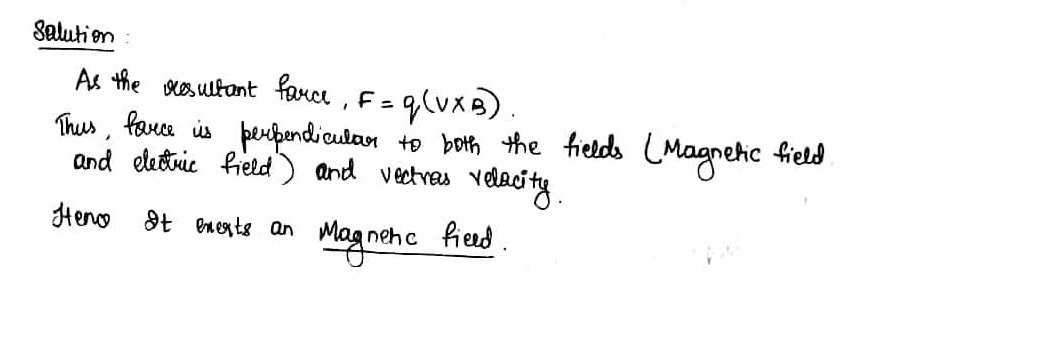 Solution :
As the resultant force, F = q(V×B).
Thus, force is perpendicular to both the fields (Magnetic field
and electric field) and vectras velocity.
Henc It exerts an Magnetic field.